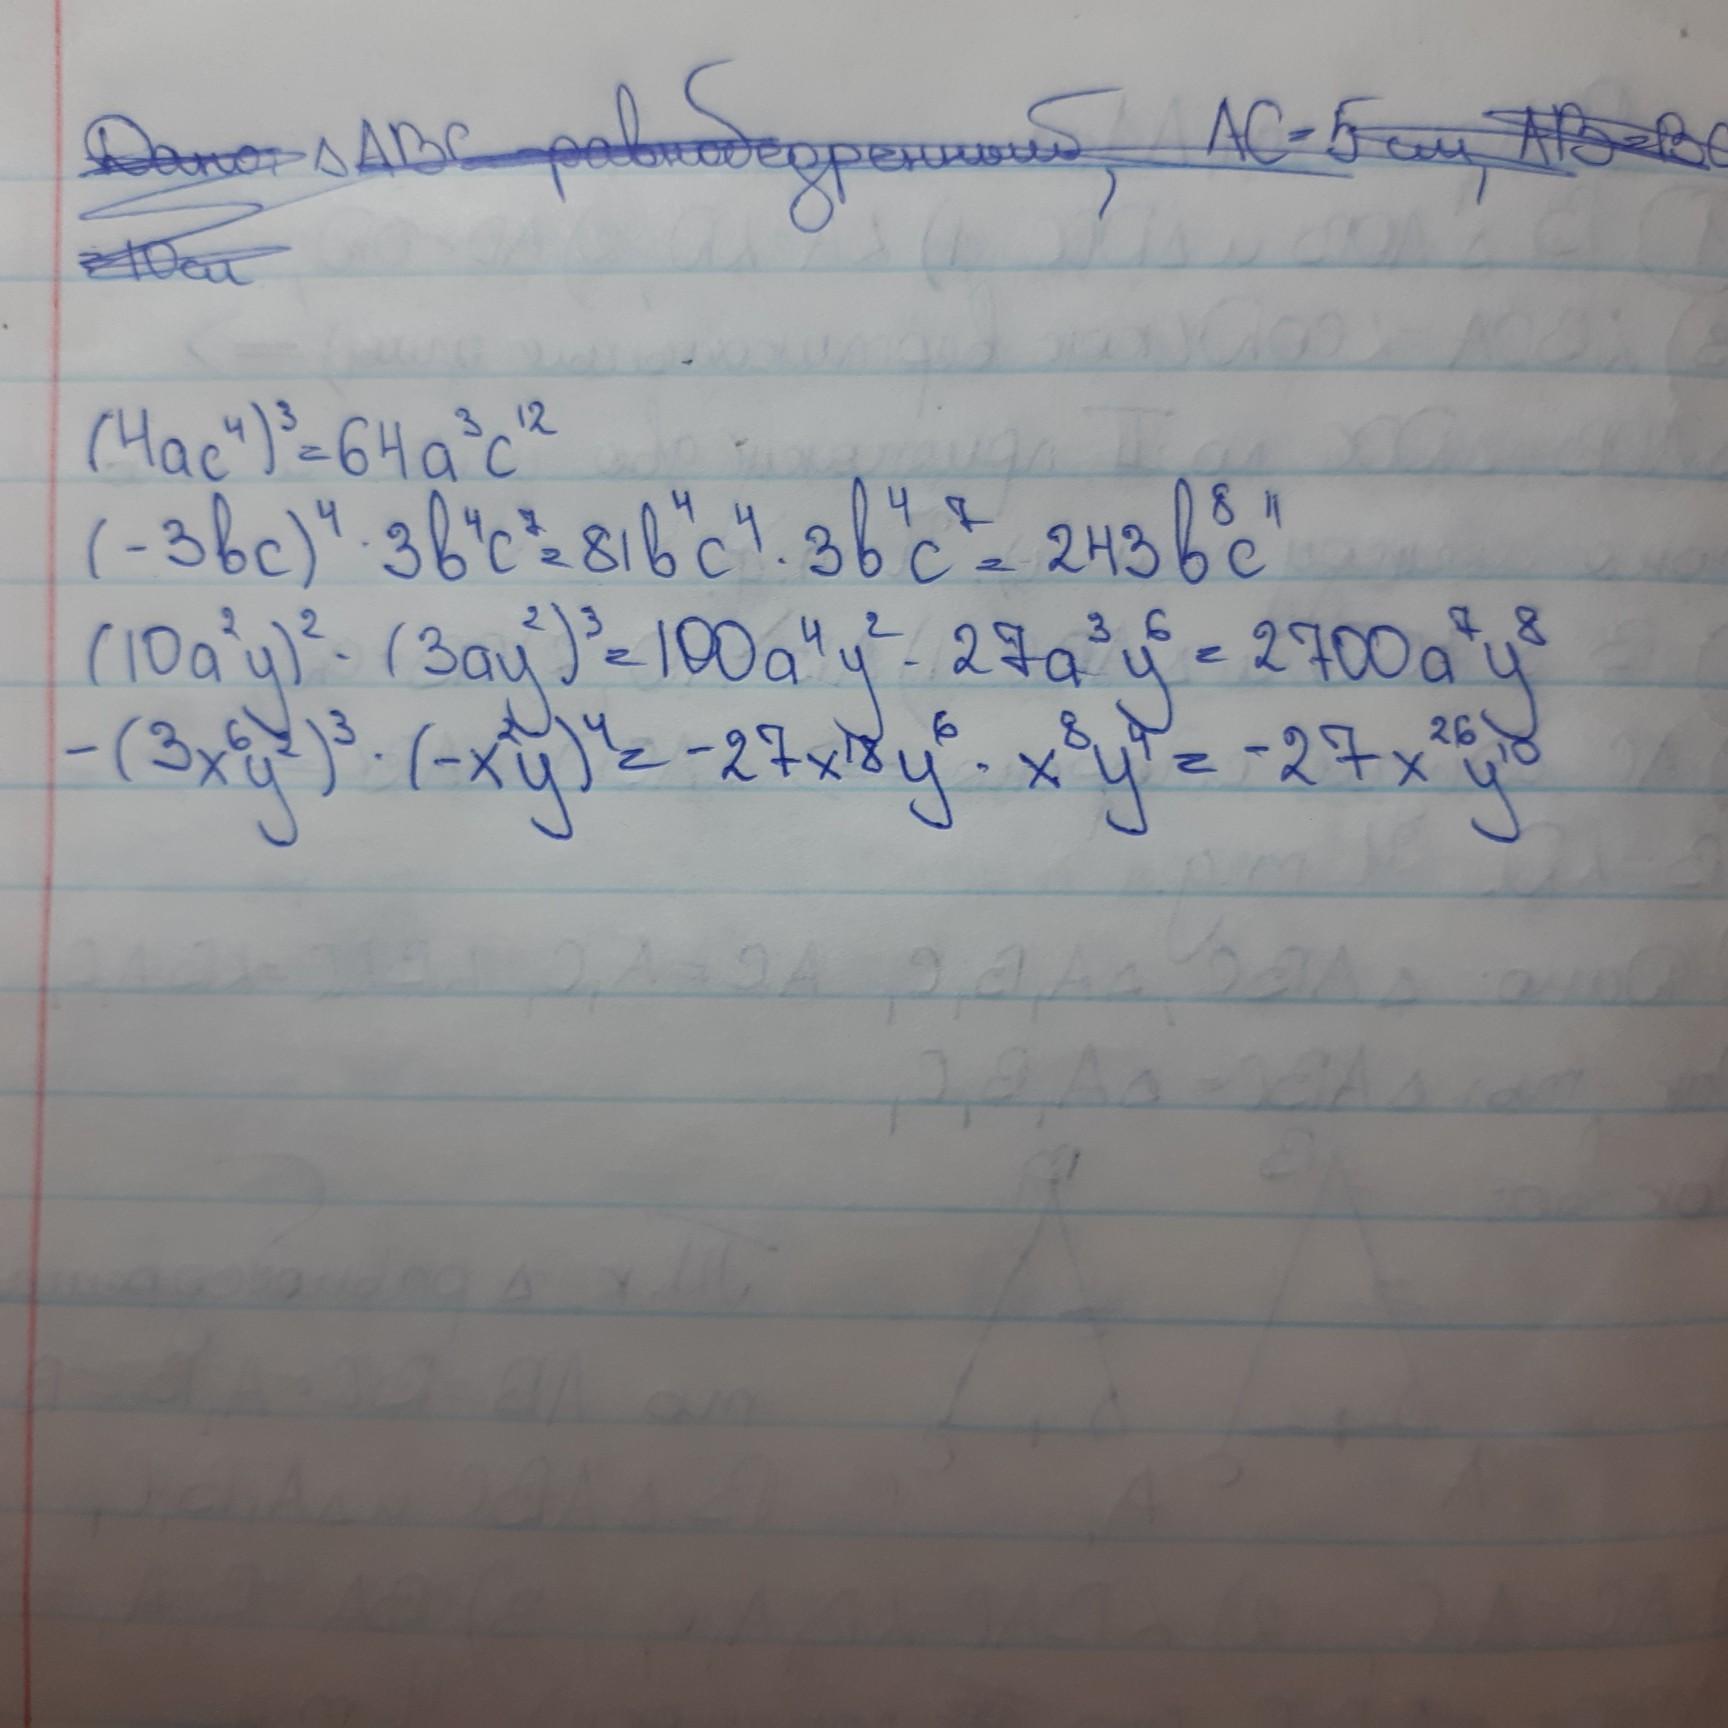 Дано: △ABC равнобедренный, AC = 5 см, AB = BC
= 10 см
(4ac⁴)³ = 64a³c¹²
(-3bc)⁴ · 3b⁴c⁷ = 81b⁴c⁴ · 3b⁴c⁷ = 243b⁸c¹¹
(10a²y)² · (3ay²)³ = 100a⁴y² · 27a³y⁶ = 2700a⁷y⁸
-(3x⁶y²)³ · (-x²y)⁴ = -27x¹⁸y⁶ · x⁸y⁴ = -27x²⁶y¹⁰